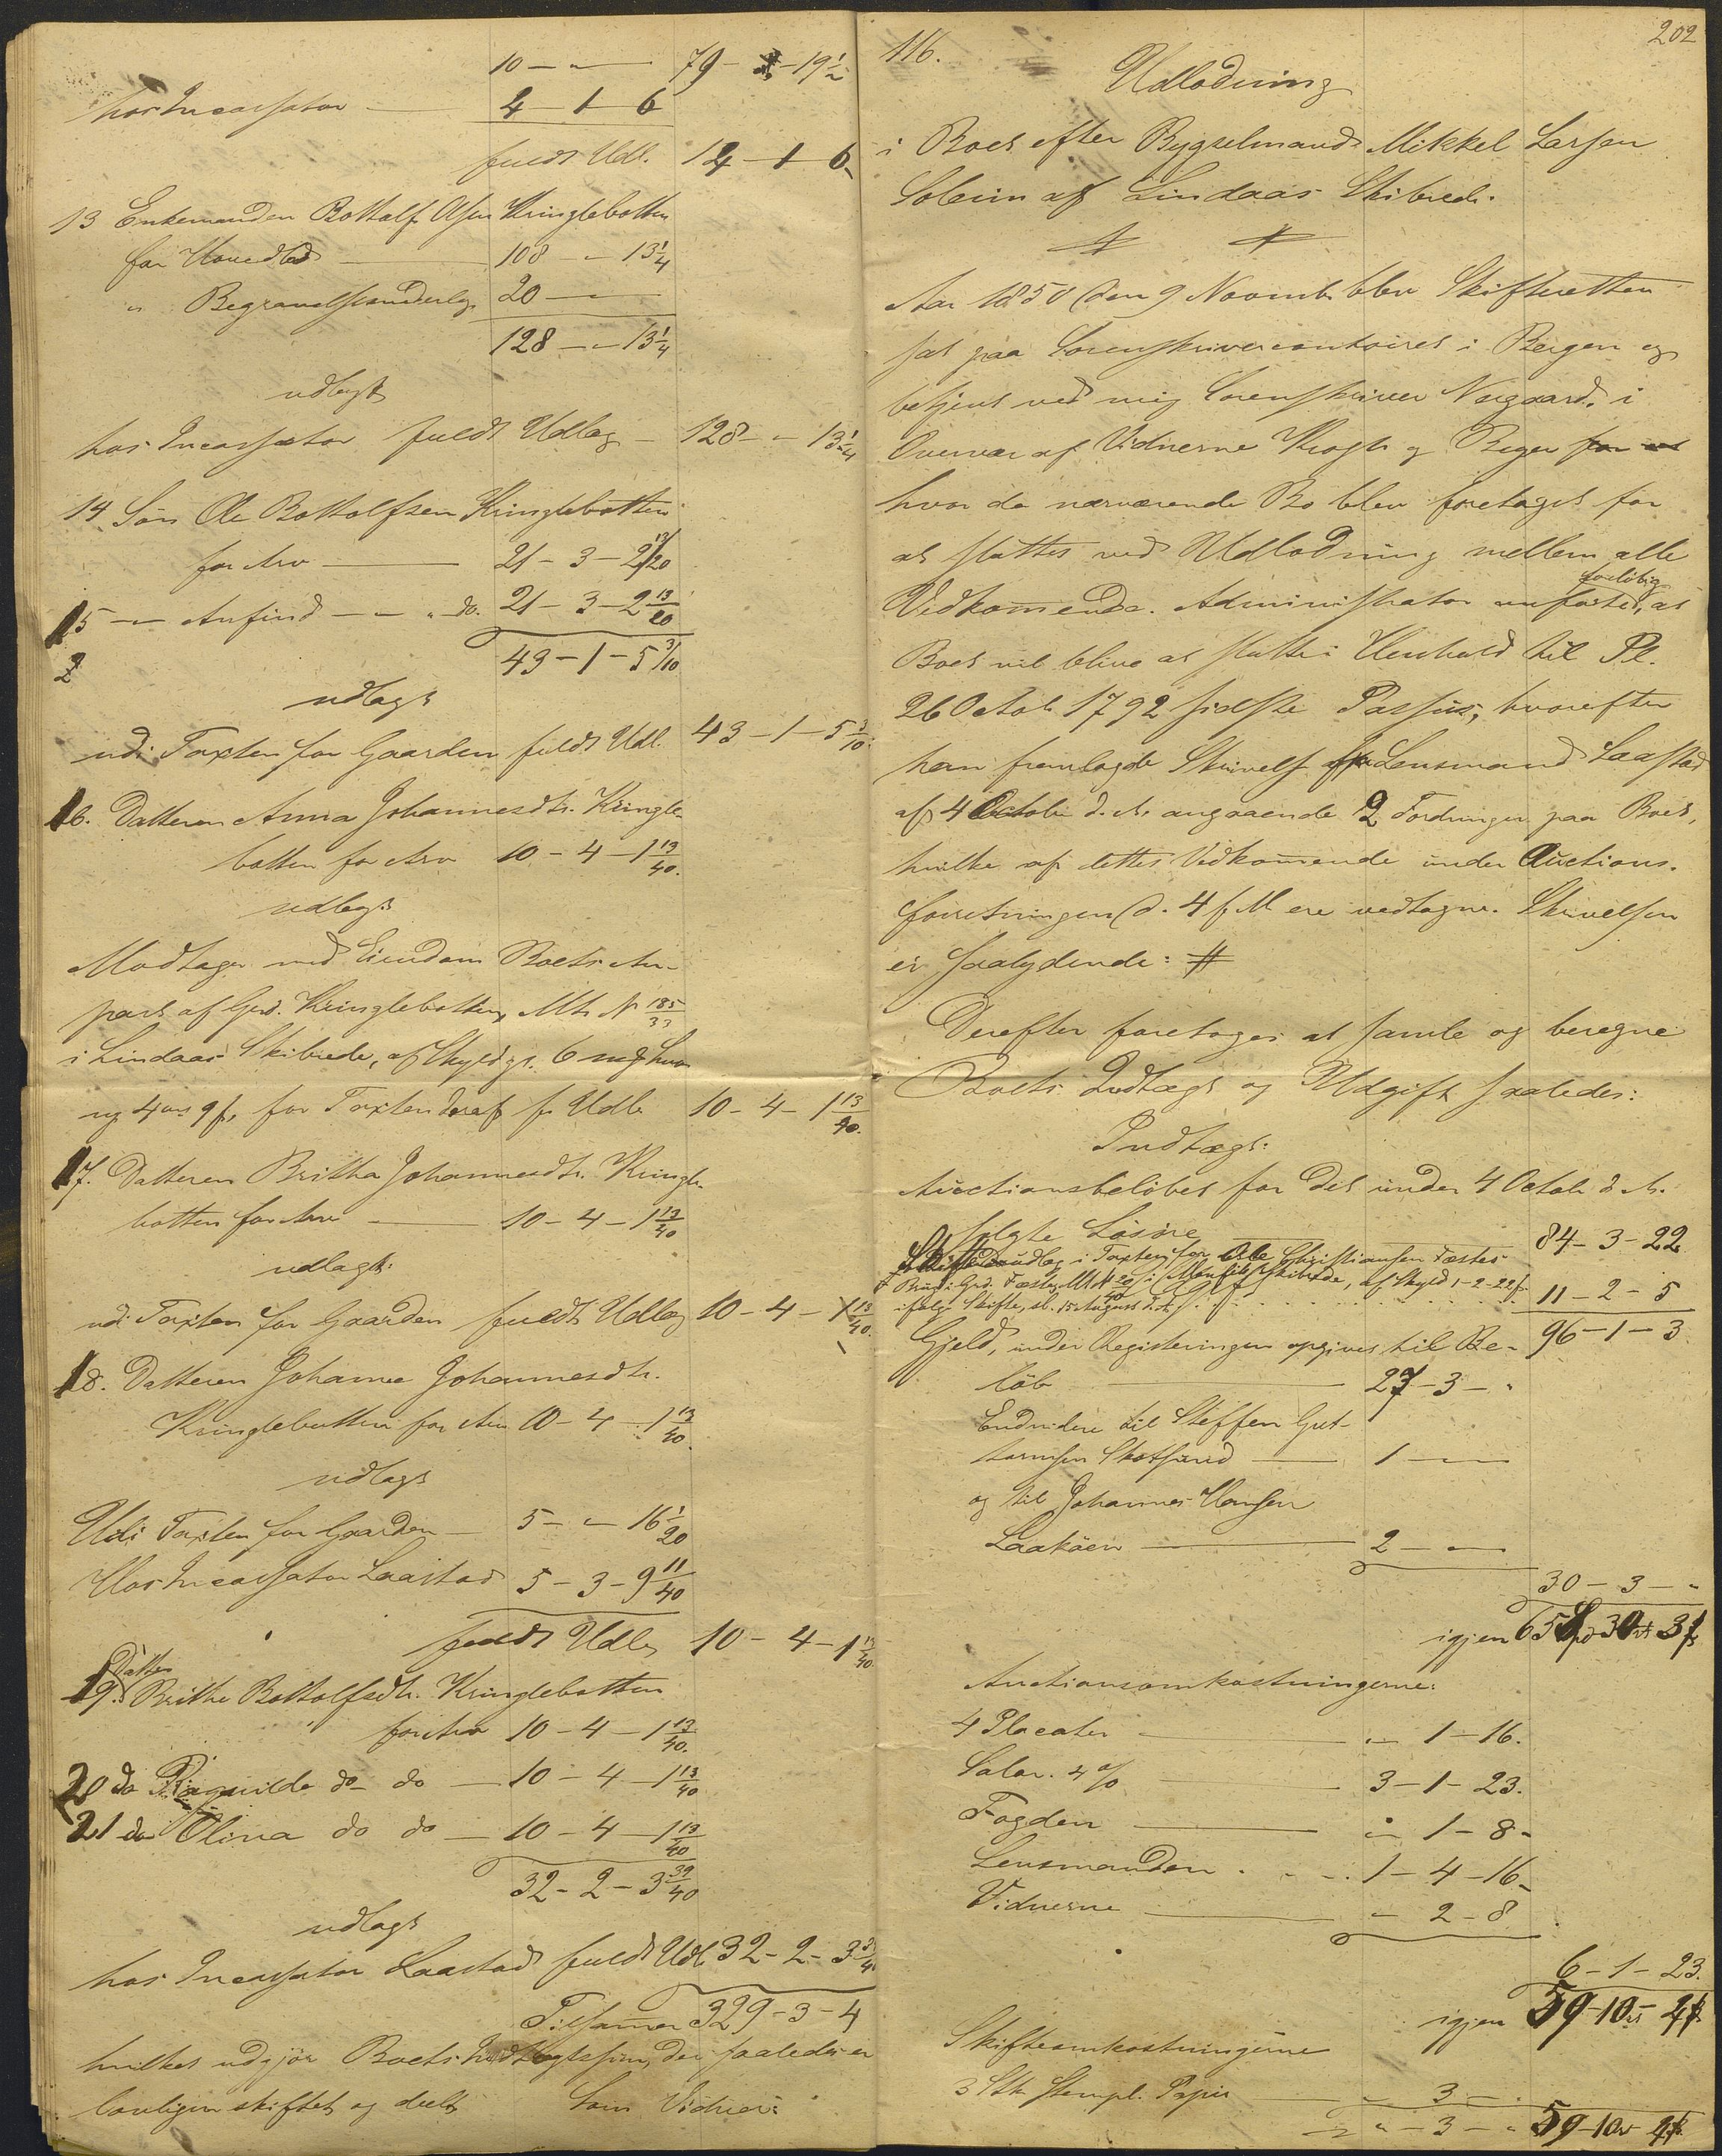 10 - " - 79 - 3 - 19 1/2
hos Incassator — 4 - 1 - 6
fuldt Udl. 14 - 1 - 6
13 Enkemanden Bottolf Olsen Kringlebotten
for Hovedlod — 108 - " - 13 1/4
" Begravelsesudlæg 20 - "
128 - " - 13 1/4
udlagt
hos Incassator fuldt Udlæg - 128 - " - 13 1/4
14 Søn Ole Bottolfsen Kringlebotten
for Arv — 21 - 3 - 2 13/20
15 — Anfind — " do. 21 - 3 - 2 13/20
43 - 1 - 5 3/10
udlagt
udi Taxten for Gaarden fuldt Udl. 43 - 1 - 5 3/10
16. Datteren Anna Johannesdtr. Kringle-
botten for Arv 10 - 4 - 1 13/40.
udlagt
Modtager med Eiendom Boets An-
part af Grd. Kringlebotten, Mtr. N 185/33
i Lindaas Skibrede, af Skyld gl. 6 mrk hvor
ny 4 ort 9 s, for Taxten deraf f. Udl. 10 - 4 - 1 13/40.
17. Datteren Britha Johannesdtr. Kringle-
botten for Arv — 10 - 4 - 1 13/40
udlagt:
udi Taxten for Gaarden fuldt Udlæg 10 - 4 - 1 13/40.
18. Datteren Johanne Johannesdtr.
Kringlebotten for Arv 10 - 4 - 1 13/40.
udlagt
Udi Taxten for Gaarden — 5 - " - 16 1/20
Hos Incassator Laastad 5 - 3 - 9 11/40
fuldt Udlæg 10 - 4 - 1 13/40.
Datter
19. Brithe Bottolfsdtr. Kringlebotten
for Arv 10 - 4 - 1 13/40.
20 do Ragnilde do do — 10 - 4 - 1 13/40
21 do Olina do do — 10 - 4 - 1 13/40
32 - 2 - 3 39/40
udlagt
hos Incassator Laastad fuldt Udl. 32 - 2 - 3 39/40
Tilsammen 329 - 3 - 4
hvilket udgjør Boets Indtægtssum, der saaledes er
lovligen skiftet og deelt Som Vidner:
116.
202
Udlodning
i Boet efter Bygselmand Mikkel Larsen
Soleim af Lindaas Skibrede.
Aar 1850 den 9 Novemb. blev Skifteretten
sat paa Sorenskrivercontoiret i Bergen og
betjent ved mig Sorenskriver Norgaard, i
Overvær af Vidnerne Krogh og Reger for at
hvor da nærværende Bo blev foretaget for
at sluttes ved Udlodning mellem alle
Vedkommende. Administrator anførte foreløbig, at
Boet vil blive at slutte i Henhold til Pl.
26 Octob. 1792 sidste Passus, hvorefter
han fremlagde Skrivelse fra Lensmand Laastad
af 4 Octobr. d. A. angaaende 2 Fordringer paa Boet,
hvilke af dettes Vedkommende under Auctions-
forretningen d. 4 f. M ere vedtagne. Skrivelsen
er saalydende: #
Derefter foretoges at samle og beregne
Boets Indtægt og Udgift saaledes:
Indtægt:
Auctionsbeløbet for det under 4 Octob. d. A.
solgte Løsøre 84 - 3 - 22
udlæg i Taxten for Ole Christiansen Fæstes
Brug i Grd. Fæste, Mtr. N i Skibrede, af Skyld 1-2-22 s
ifølge Skifte, sl. 15 August d. A. 11 - 2 - 5
96 - 1 - 3
Gjeld, under Registeringen opgivet til Be-
løb — 27 - 3 - "
Endvidere til Steffen Gut-
tormsen Skotsund — 1 - "
og til Johannes Hansen
Laakøen — 2 - "
30 - 3 - "
igjen 65 Spd 3 ort 3 s
Auctionsomkostningerne:
4 Placater — " - 1 - 16.
Salar. 4 % — 3 - 1 - 23.
Fogden — " - 1 - 8 -
Lensmanden - - - 1 - 4 - 16 -
Vidnerne — " - 2 - 8
6 - 1 - 23.
igjen 59 - 1 ort - 4 s
Skifteomkostningerne
3 Stk stempl. Papir — " - 3 - "
" - 3 - " 59 - 1 ort - 4 s